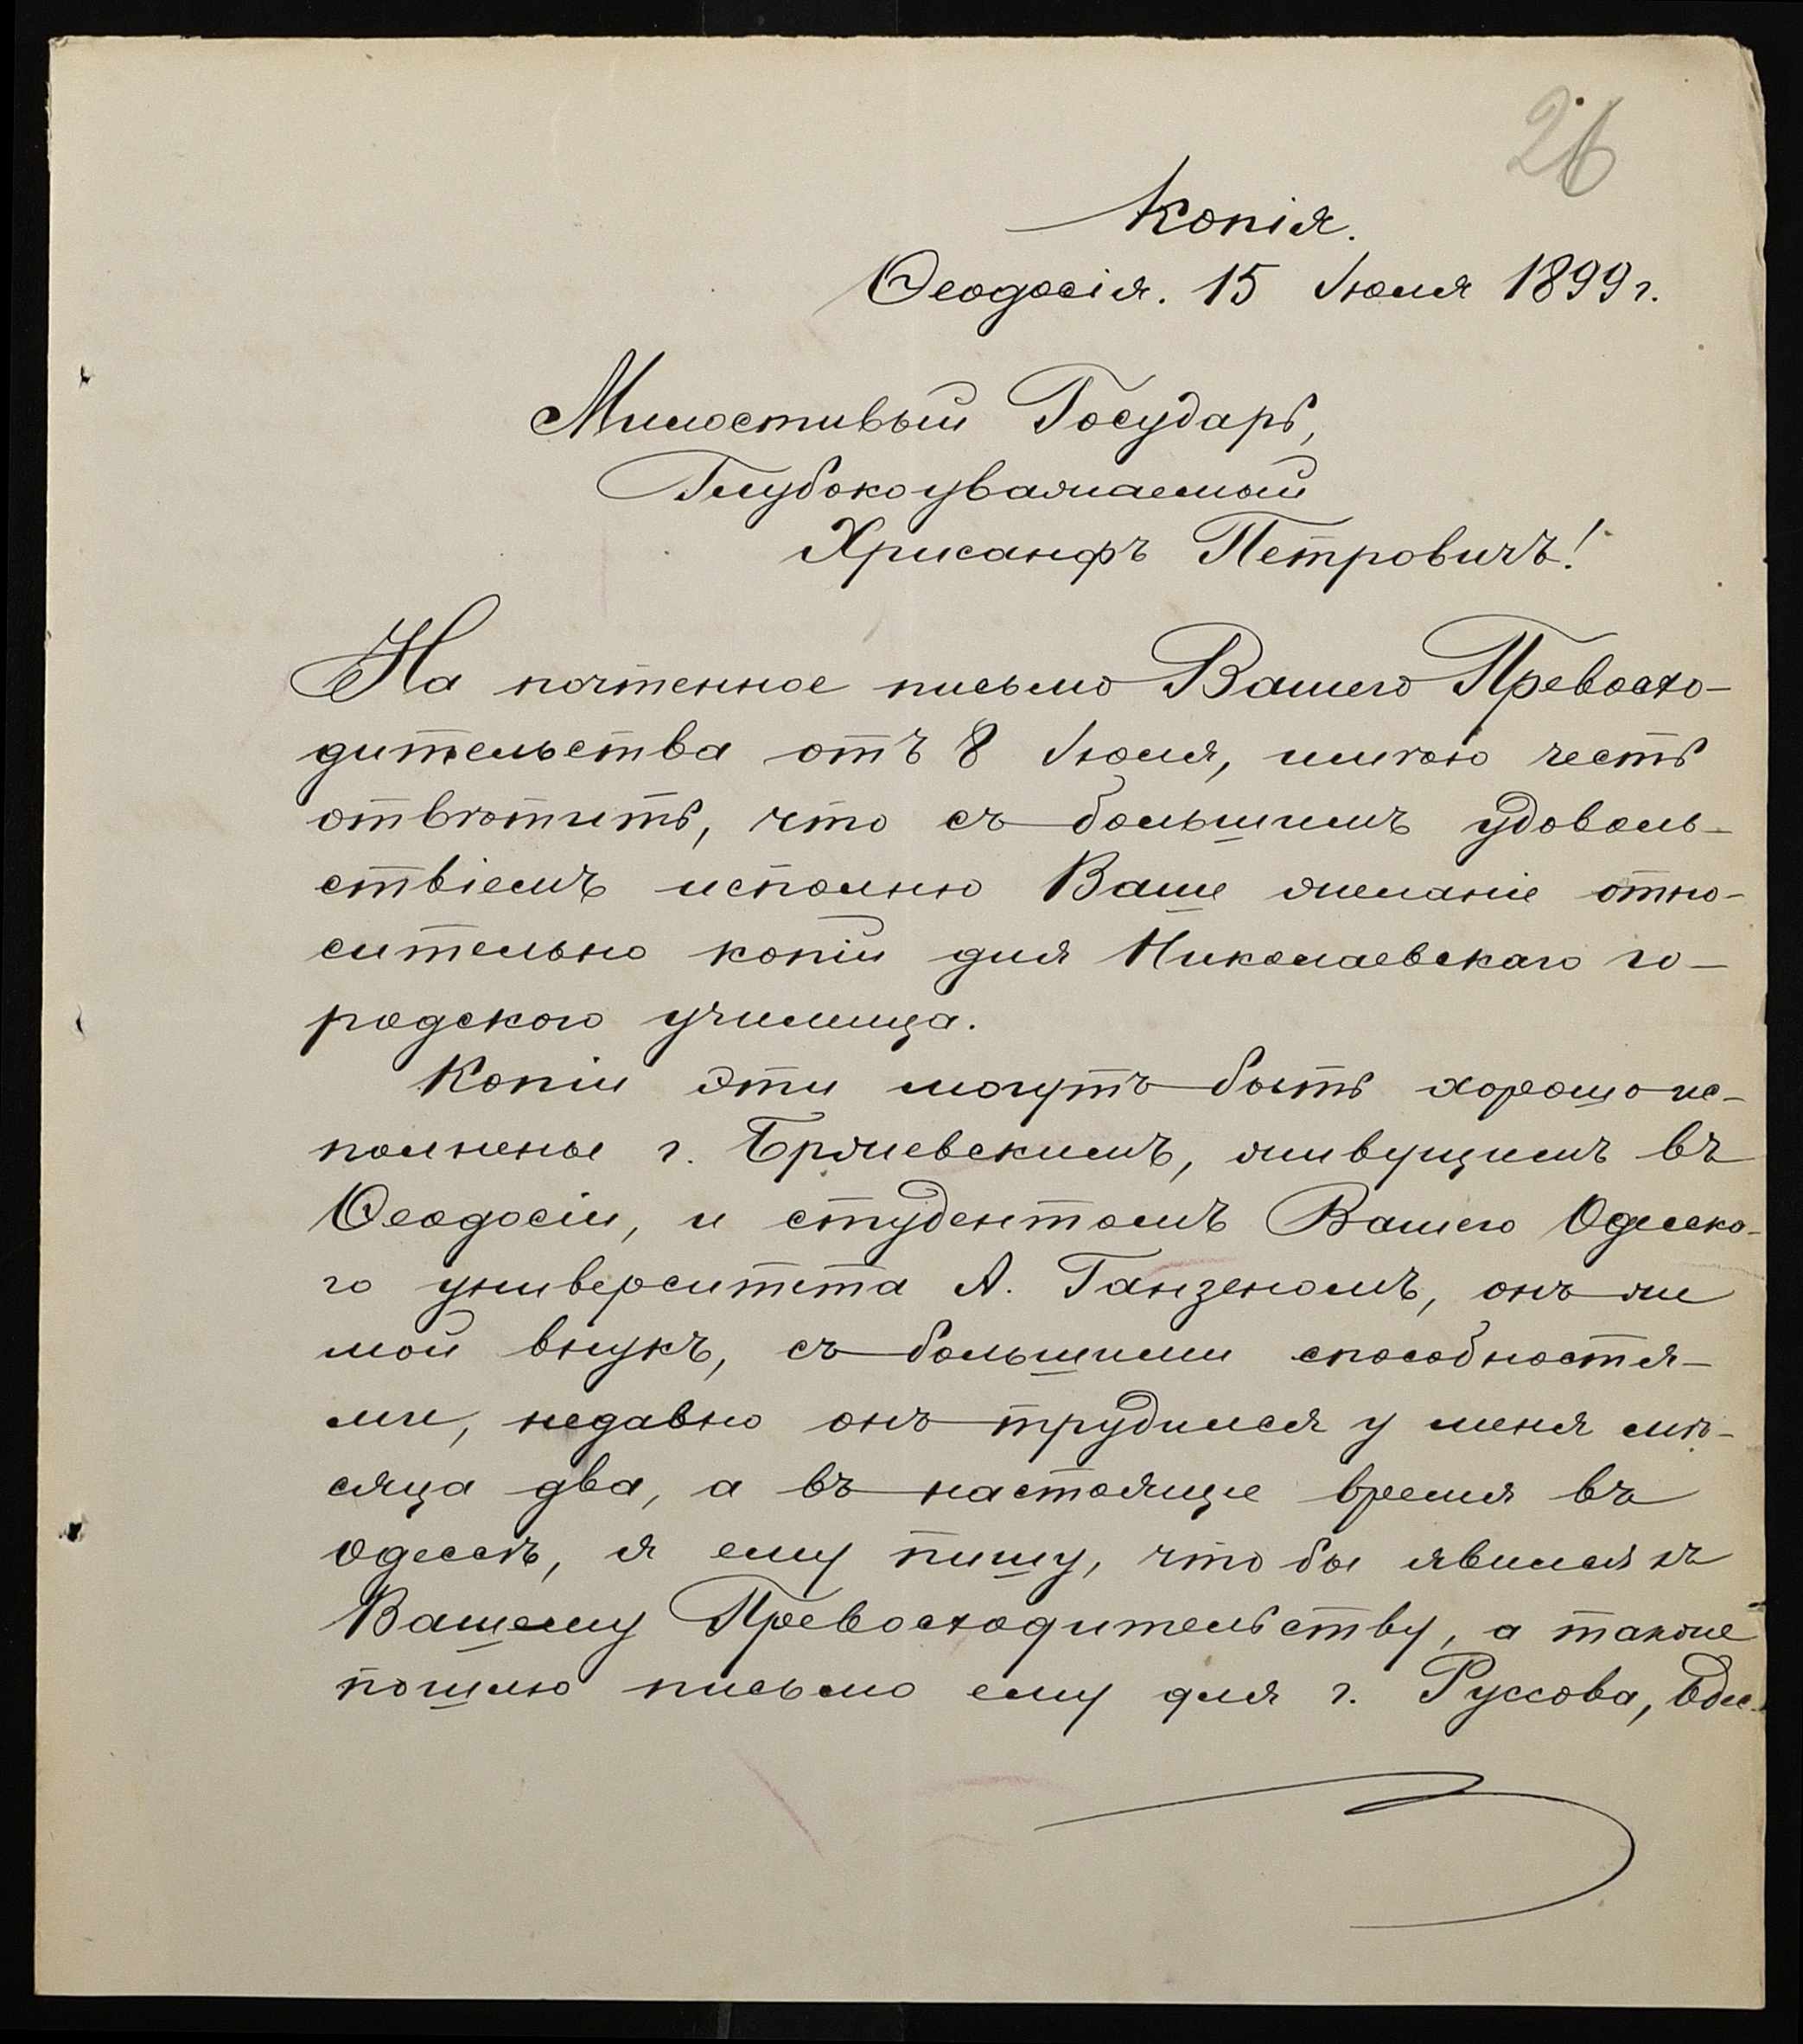 26
Копія.
Ѳеодосія. 15 Июля 1899 г.
Милостивый Государь,
Глубокоуважаемый
Хрисанфъ Петровичъ!
На почтенное письмо Вашего Превосхо-
дительства отъ 8 Июля, имѣю честь
отвѣтить, что съ большимъ удоволь-
ствіемъ исполню Ваше желаніе отно-
сительно копій для Николаевскаго го-
родского училища.
Копіи эти могутъ быть хорошо ис-
полнены г. Бржевскимъ, живущимъ въ
Ѳеодосіи, и студентомъ Вашего Одесско-
го университета А. Ганзеномъ, онъ же
мой внукъ, съ большими способностя-
ми, недавно онъ трудился у меня мѣ-
сяца два, а въ настоящее время въ
Одессѣ, я ему пишу, что бы явился къ
Вашему Превосходительству, а также
пошлю письмо ему для г. Руссова,